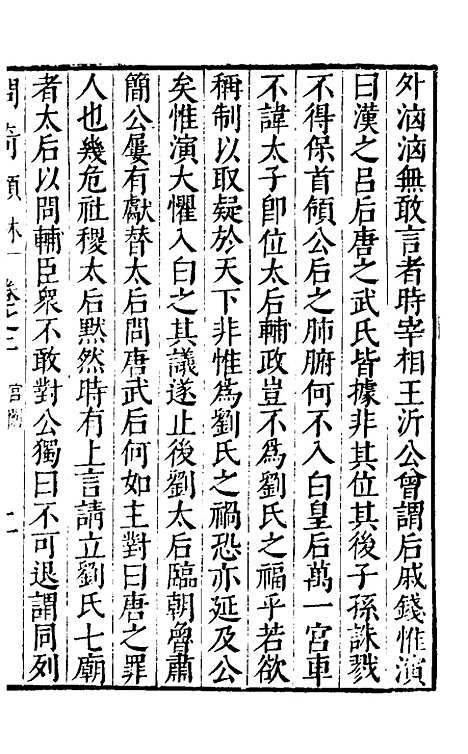 外洶洶無敢言者時宰相王沂公曾謂后戚錢惟演
曰漢之呂后唐之武氏皆據非其位其後子孫誅戮
不得保首領公后之肺腑何不入白皇后萬一宮車
不諱太子卽位太后輔政豈不爲劉氏之福乎若欲
稱制以取疑於天下非惟爲劉氏之禍恐亦延及公
矣惟演大懼入白之其議遂止後劉太后臨朝魯肅
簡公屢有獻替太后問唐武后何如主對曰唐之罪
人也幾危社稷太后黙然時有上言請立劉氏七廟
者太后以問輔臣衆不敢對公獨曰不可退謂同列